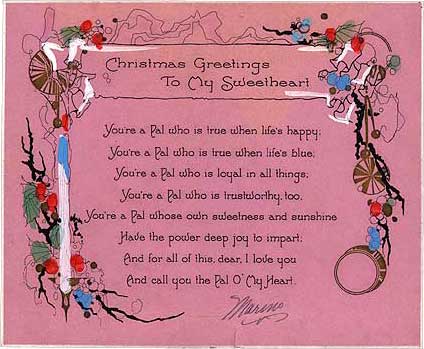 Christmas Greetings
To My Sweetheart
You're a Pal who is true when life's happy;
You're a Pal who is true when life's blue;
You're a Pal who is loyal in all things;
You're a Pal who is trustworthy, too,
You're a Pal whose own sweetness and sunshine
Have the power deep joy to impart;
And for all of this, dear, I love you
And call you the Pal O' My Heart.